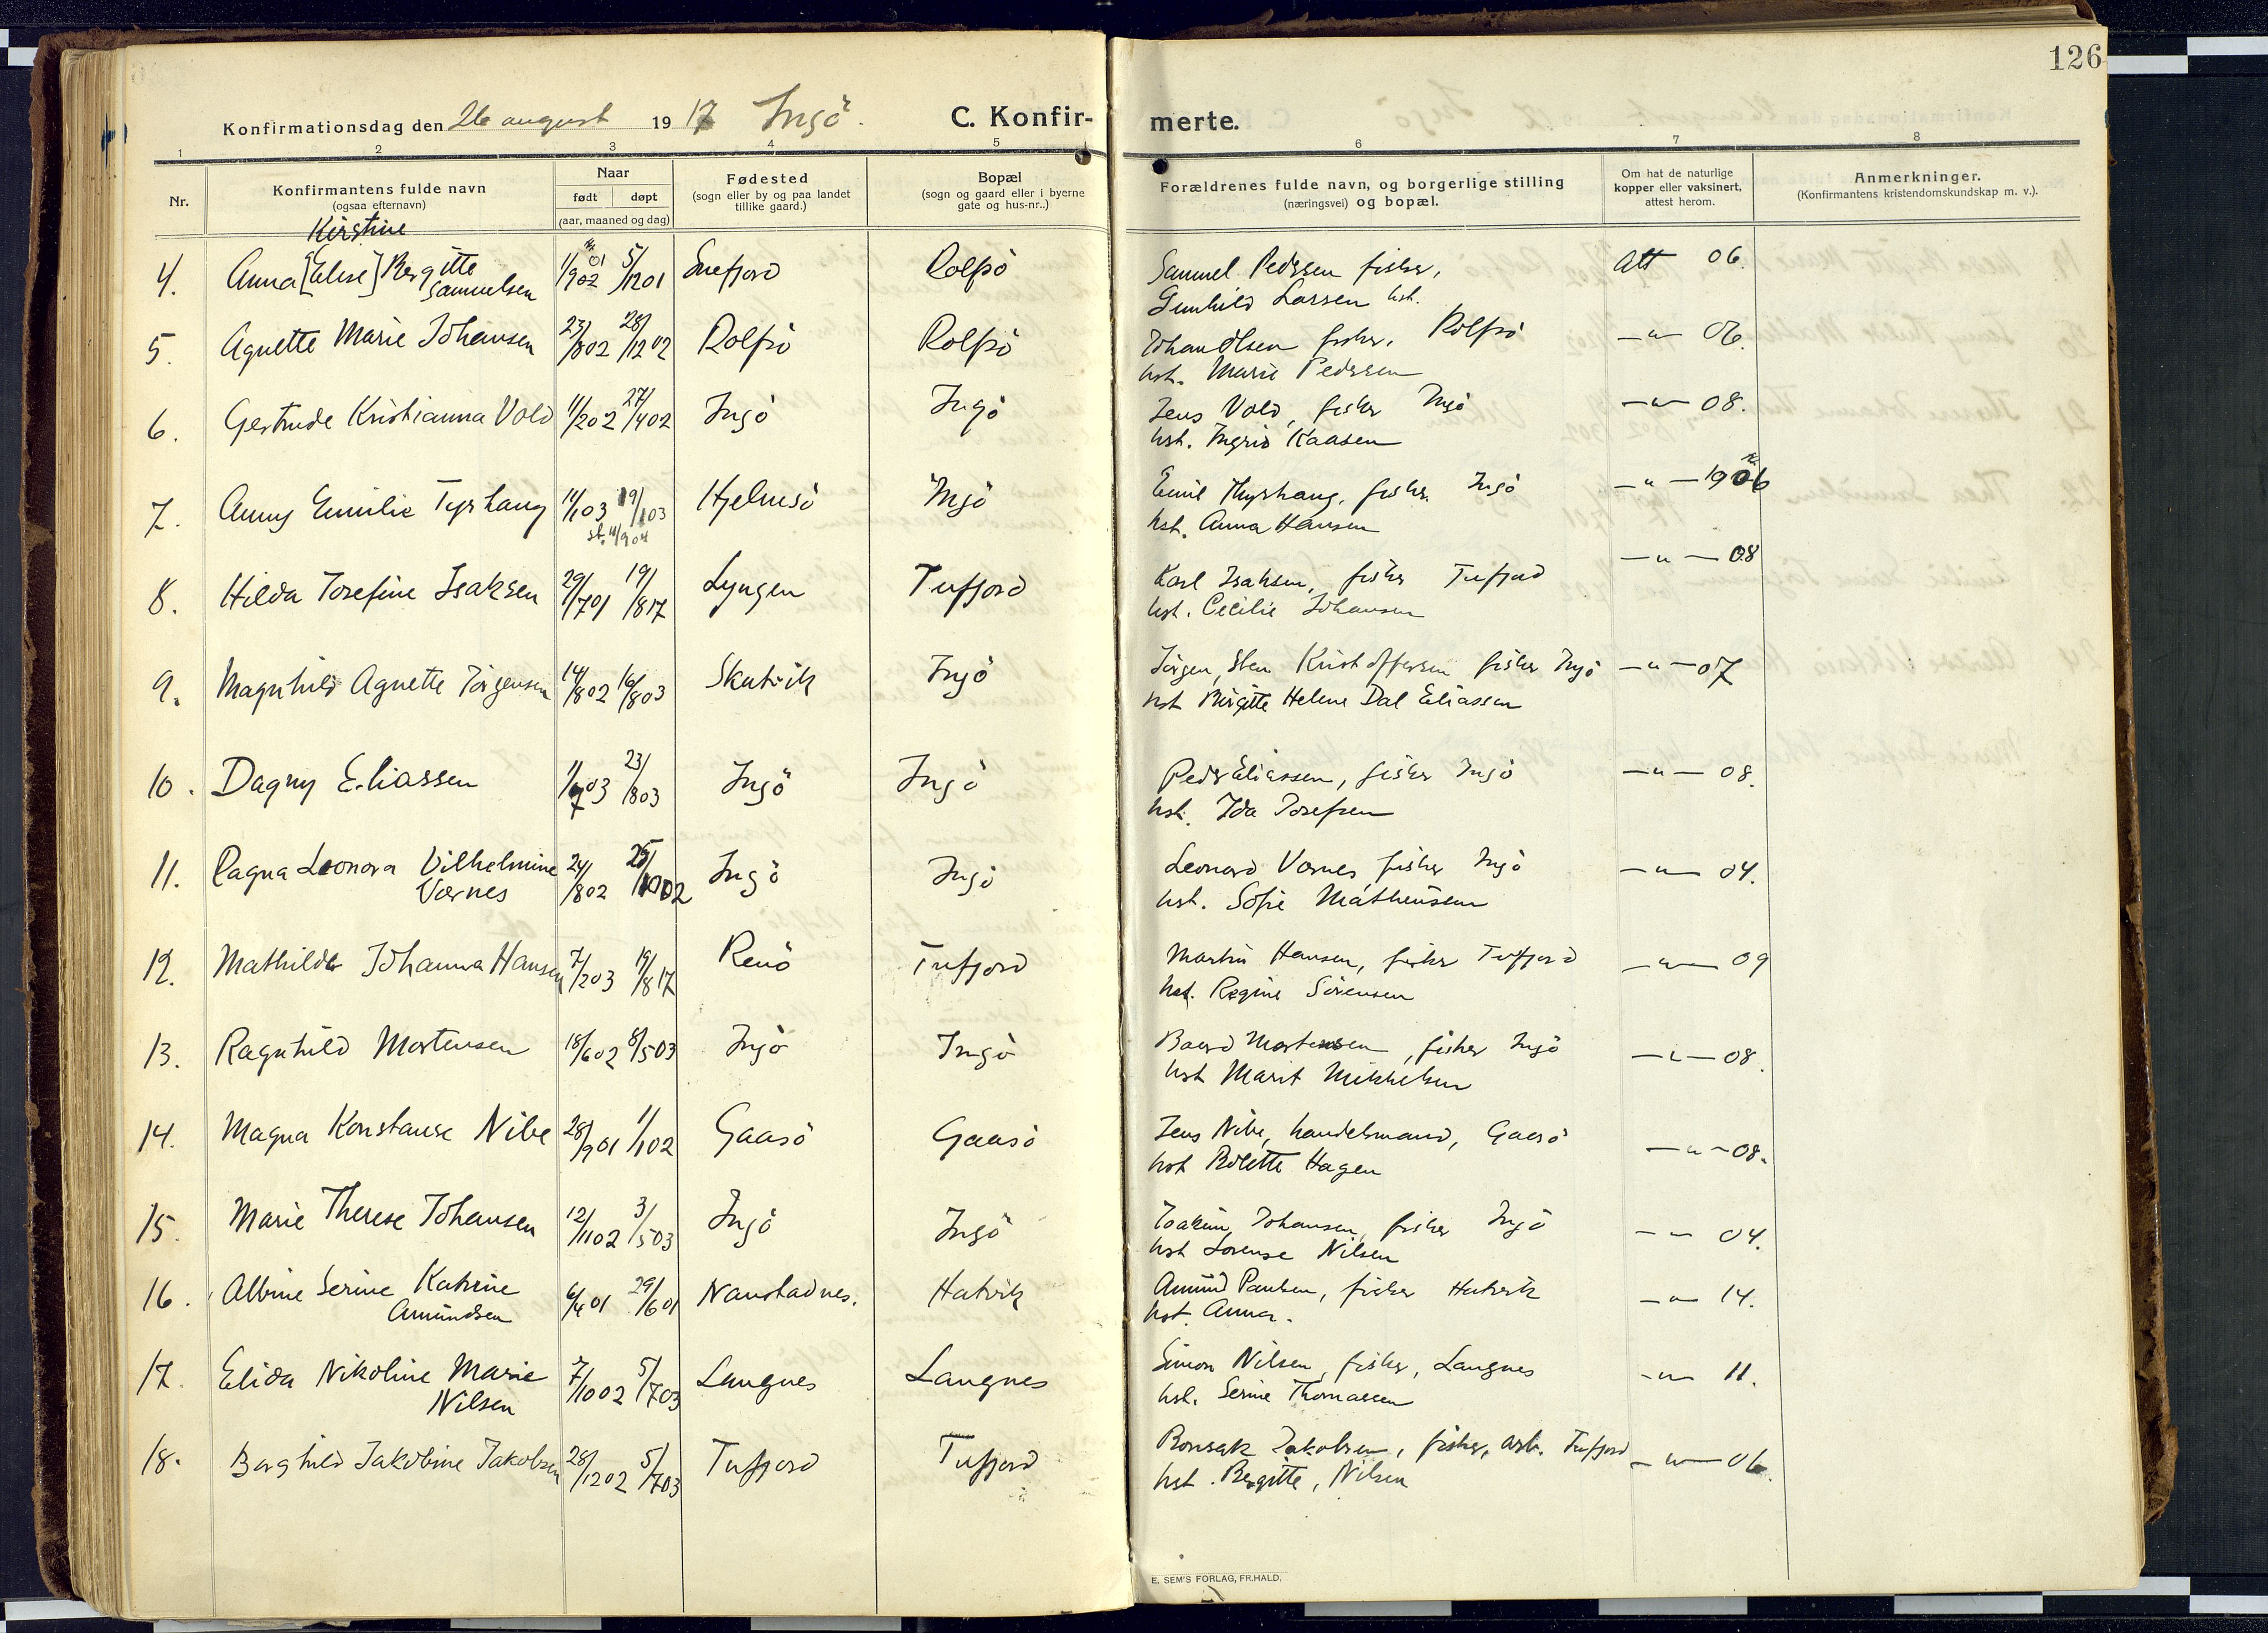 126
Konfirmationsdag den 26 august 1917 Ingö. C. Konfir- merte.
1 2 3 4 5 6 7 8
Nr.
Konfirmantens fulde navn
(ogsaa efternavn)
Naar
født døpt
(aar, maaned og dag)
Fødested
(sogn eller by og paa landet
tillike gaard.)
Bopæl
(sogn og gaard eller i byerne
gate og hus-nr..)
Forældrenes fulde navn, og borgerlige stilling
(næringsvei) og bopæl.
Om hat de naturlige
kopper eller vaksinert,
attest herom.
Anmerkninger.
(Konfirmantens kristendomskundskap m. v.).
Kirstine
4. Anna [Elise] Bergitte 1/9 02 01 5/12 01 Snefjord Rolfsö Samuel Pedersen fisker, Att 06.
Samuelsen Gunhild Larsen hst.
5. Agnette Marie Johansen 23/8 02 28/12 02 Rolfsö Rolfsö Johan Olsen fisker, Rolfsö —"— 06.
hst. Marie Pedersen
6. Gertrude Kristianna Vold 11/2 02 27/4 02 Ingö Ingö Jens Vold, fisker Ingö —"— 08.
hst. Ingrid Kaasen
7. Anny Emilie Tyrhaug 11/1 03 19/1 03 Hjelmsö Ingö Emil Thyrhaug, fisker Ingö —"— 1906
st. 11/9 04 hst. Anna Hansen
8. Hilda Josefine Isaksen 29/7 01 19/8 17 Lyngen Tufjord Karl Isaksen, fisker Tufjord —"— 08
hst. Cecilie Johansen
9. Magnhild Agnette Jörgensen 14/8 02 16/8 03 Skatvik Ingö Jörgen, Sten Kristoffersen fisker Ingö —"— 07
hst Birgitte Helene Dal Eliassen
10. Dagny Eliassen 1/7 03 23/8 03 Ingö Ingö Peder Eliassen, fisker Ingö —"— 08.
hst. Ida Josefsen
11. Ragna Leonora Vilhelmine 24/8 02 25/10 02 Ingö Ingö Leonard Værnes, fisker Ingö —"— 04.
Værnes hst. Sofie Matheussen
12. Mathilde Johanna Hansen 7/2 03 19/8 17 Renö Tufjord Martin Hansen, fisker Tufjord —"— 09
hst. Regine Sörensen
13. Ragnhild Mortensen 18/6 02 8/5 03 Ingö Ingö Baard Mortensen, fisker Ingö —"— 08.
hst Marit Mikkelsen
14. Magna Konstanse Nibe 28/9 01 1/1 02 Gaasö Gaasö Jens Nibe, handelsmand, Gaasö —"— 08.
hst Bolette Hagen
15. Marie Therese Johansen 12/11 02 3/5 03 Ingö Ingö Joakim Johansen, fisker Ingö —"— 04.
hst Lorense Nilsen
16. Albine Serine Katrine 6/4 01 29/6 01 Nanstadnes. Hatvik Amund Paulsen, fisker Hatvik —"— 14.
Amundsen hst. Anna.
17. Elida Nikoline Marie 7/10 02 5/7 03 Langnes Langnes Simon Nilsen, fisker, Langnes —"— 11.
Nilsen hst. Serine Thomassen
18. Borghild Jakobine Jakobsen 28/12 02 5/7 03 Tufjord Tufjord Bonsak Jakobsen, fisker, arb. Tufjord —"— 06.
hst. Bergitte, Nilsen
E. SEM'S FORLAG, FR.HALD.